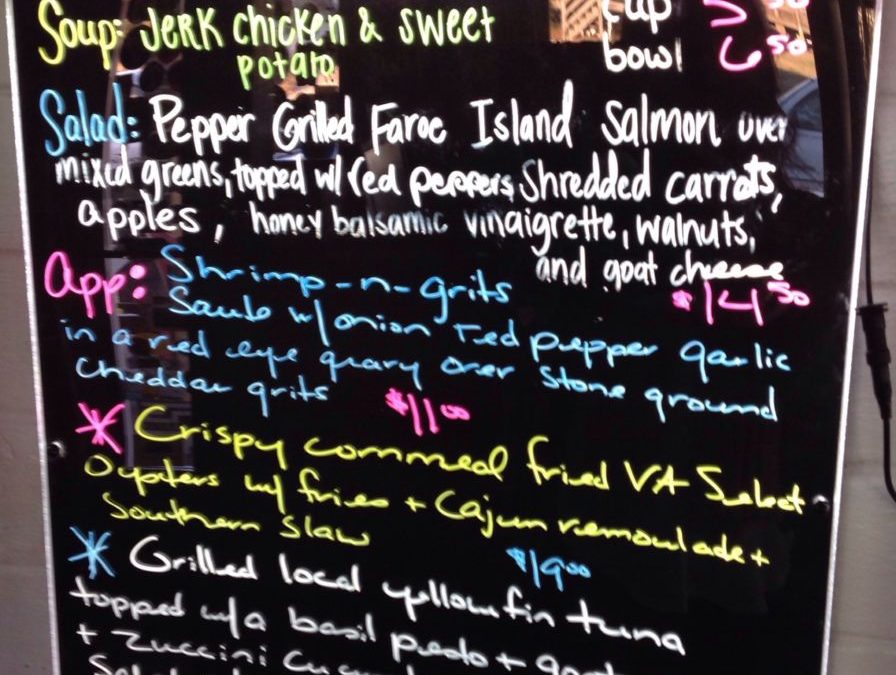 Soup: Jerk chicken & sweet cup 5 50
potato bowl 6 50
Salad: Pepper Grilled Faroe Island Salmon over
mixed greens, topped w/ red peppers, Shredded carrots,
apples, honey balsamic vinaigrette, walnuts,
and goat cheese
App: Shrimp-n-grits $14 50
Saub w/ onion red pepper garlic
in a red eye gravy over stone ground
cheddar grits $11 00
* Crispy cornmeal fried VA Select
Oysters w/ fries + Cajun remoulade +
Southern Slaw $19 00
* Grilled local yellowfin tuna
topped w/a basil pesto + goat
+ Zuccini